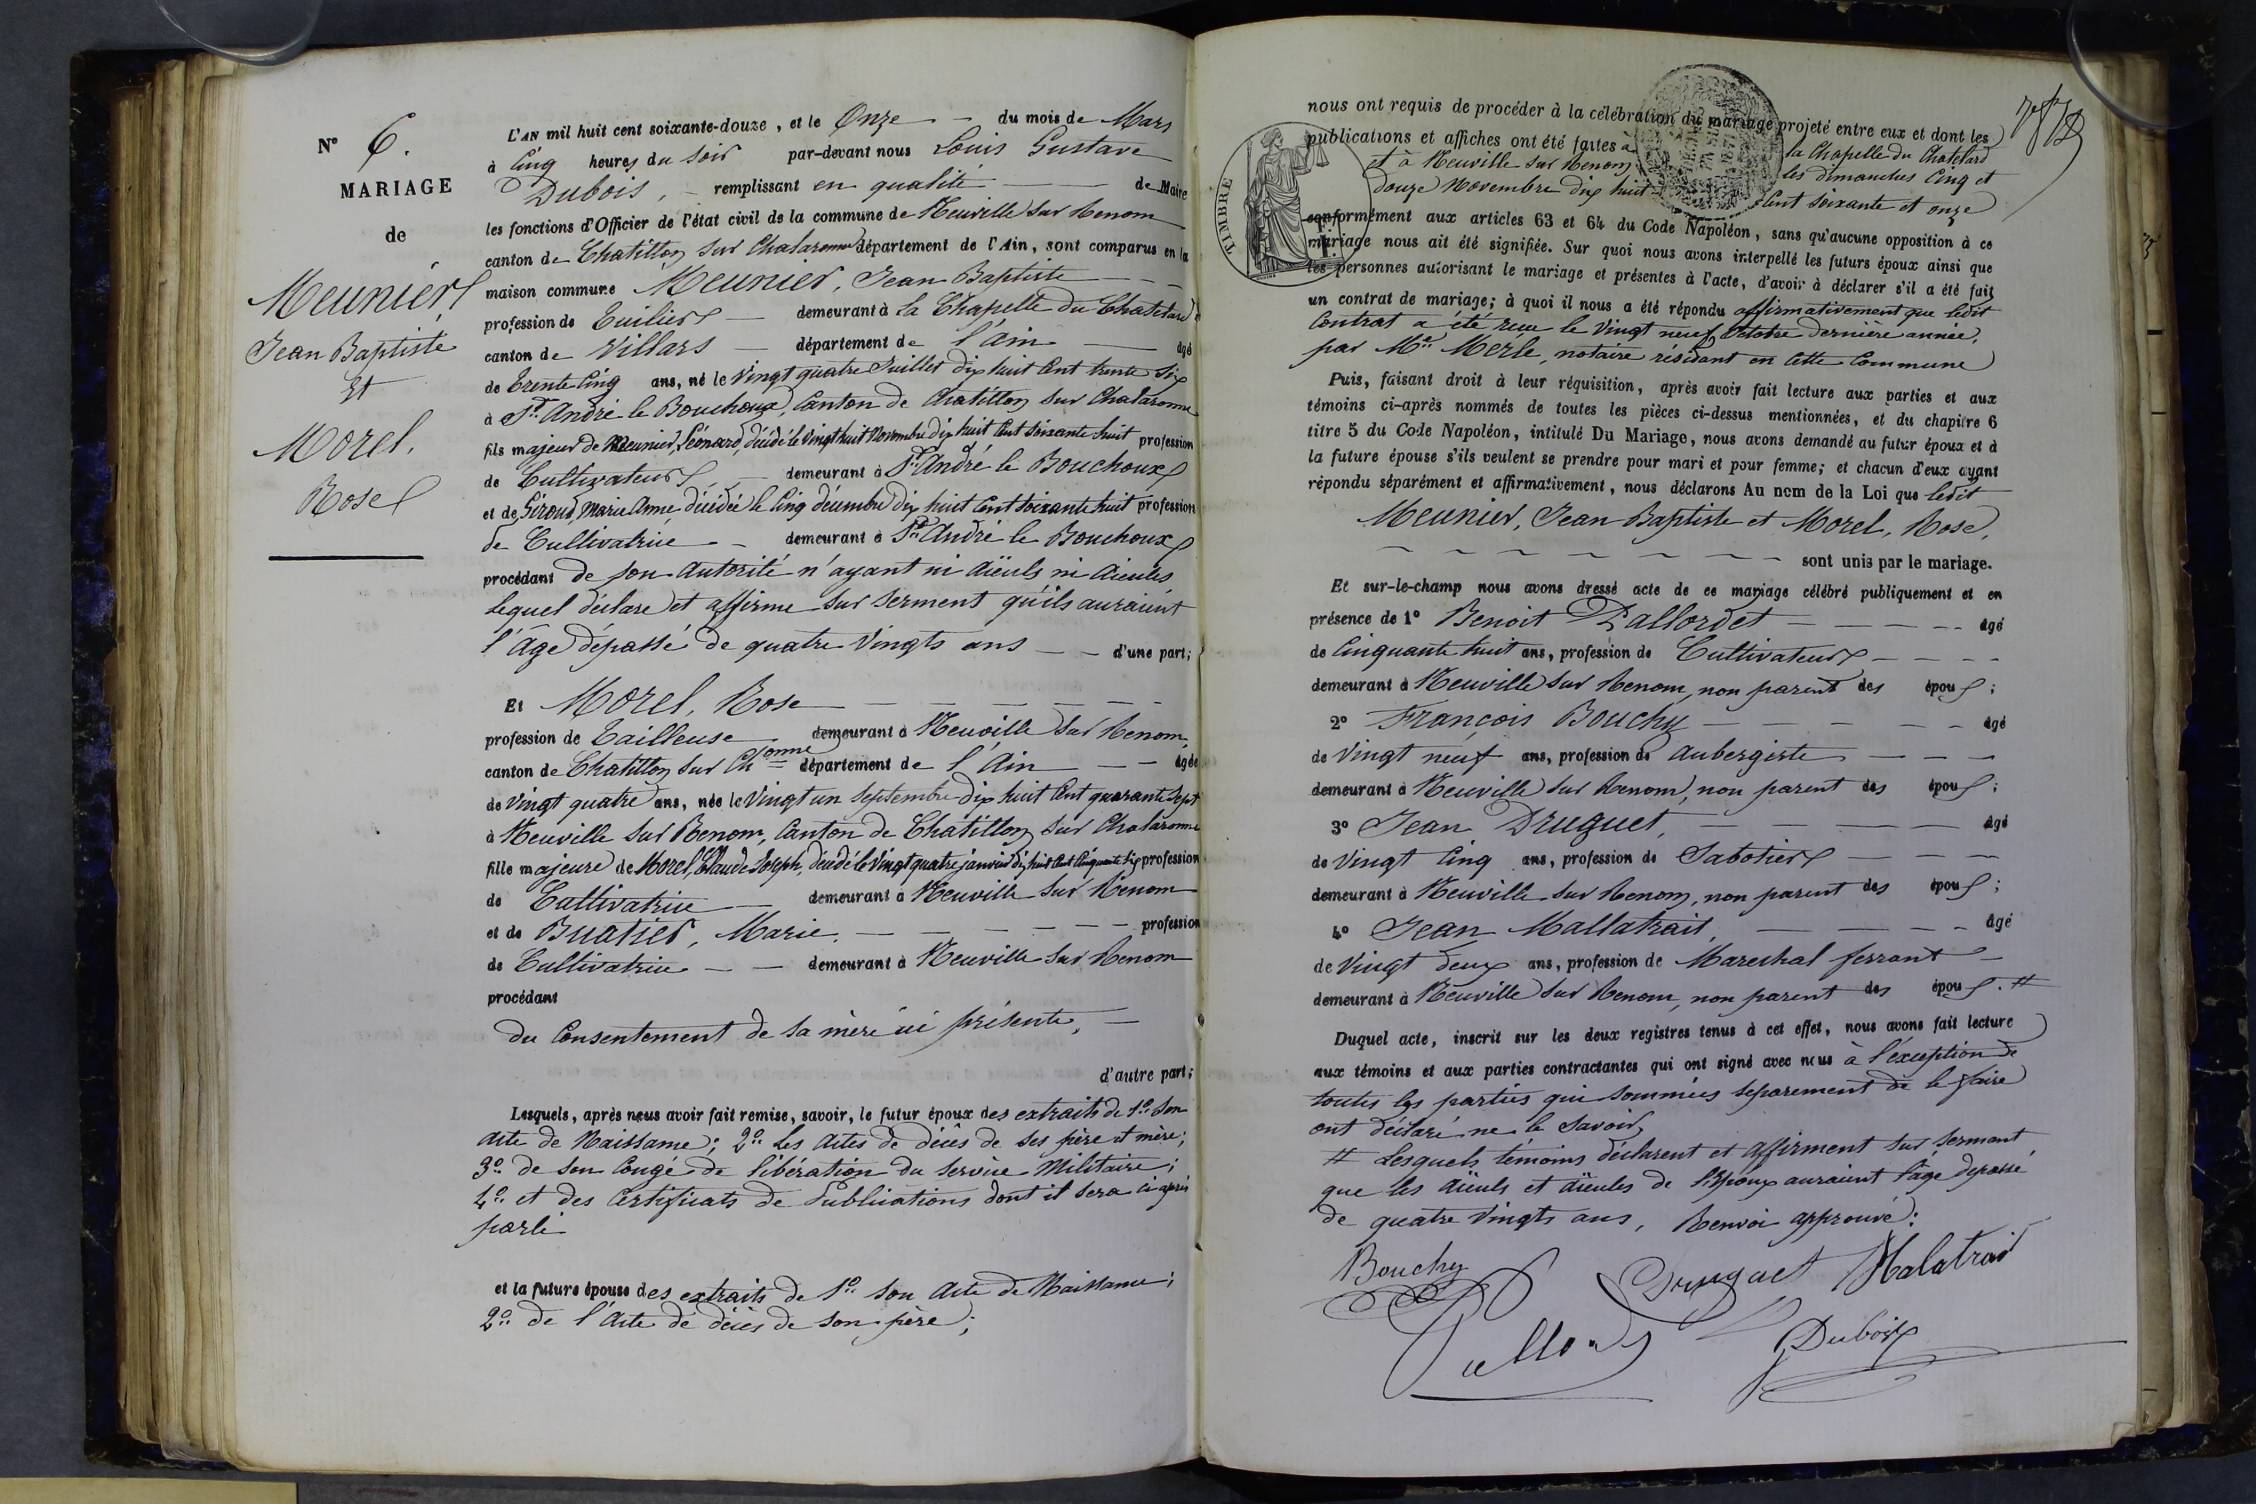 N° 6.
MARIAGE
de
Meunier,
Jean Baptiste
Et
Morel,
Rose
L'AN mil huit cent soixante-douze, et le Onze du mois de Mars
à Cinq heures du Soir par-devant nous Louis Gustave
Dubois, remplissant en qualité de Maire
les fonctions d'Officier de l'état civil de la commune de Neuville sur Renom
canton de Chatillon sur Chalaronne département de l'Ain, sont comparus en la
maison commune Meunier, Jean Baptiste
profession de Tuilier demeurant à La Chapelle du Chatelard
canton de Villars département de l'Ain âgé
de Trente Cinq ans, né le Vingt quatre Juillet dix huit Cent trente Six
à St. André le Bouchoux, Canton de Chatillon sur Chalaronne
fils majeur de Meunier, Léonard, décédé le Vingt huit Novembre dix huit Cent Soixante huit profession
de Cultivateur demeurant à St. André le Bouchoux
et de Giroud, Marie Anne, décédée le Cinq décembre dix huit Cent Soixante huit profession
de Cultivatrice demeurant à St. André le Bouchoux
procédant de son autorité n'ayant ni aïeuls ni aïeules
lequel déclare et affirme sur serment qu'ils auraient
l'âge dépassé de quatre Vingts ans d'une part;
Et Morel, Rose
profession de Tailleuse demeurant à Neuville sur Renom,
canton de Chatillon sur Chonne département de l'Ain âgée
de Vingt quatre ans, née le Vingt un Septembre dix huit Cent quarante Sept
à Neuville sur Renom, Canton de Châtillon sur Chalaronne
fille majeure de Morel, Claude Joseph, décédé le Vingt quatre janvier dix huit Cent Cinquante Six profession
de Cultivatrice demeurant à Neuville sur Renom
et de Buatier, Marie, profession
de Cultivatrice demeurant à Neuville sur Renom
procédant
du Consentement de sa mère ici présente,
d'autre part;
Lesquels, après nous avoir fait remise, savoir, le futur époux des extraits de 1° Son
Acte de Naissance; 2° Les Actes de décès de ses père et mère;
3° de son Congé de libération du Service Militaire;
4° et des Certificats de Publications dont il sera ci après
parlé
et la future épouse des extraits de 1° Son Acte de Naissance;
2° de l'Acte de décès de son père;
nous ont requis de procéder à la célébration du mariage projeté entre eux et dont les
publications et affiches ont été faites à la Chapelle du Chatelard
et à Neuville sur Renom les dimanches Cinq et
douze Novembre dix huit Cent Soixante et onze
conformément aux articles 63 et 64 du Code Napoléon, sans qu'aucune opposition à ce
mariage nous ait été signifiée. Sur quoi nous avons interpellé les futurs époux ainsi que
les personnes autorisant le mariage et présentes à l'acte, d'avoir à déclarer s'il a été fait
un contrat de mariage; à quoi il nous a été répondu affirmativement que ledit
Contrat a été reçu le Vingt neuf Octobre dernière année,
par Me. Merle, notaire résidant en cette Commune
Puis, faisant droit à leur réquisition, après avoir fait lecture aux parties et aux
témoins ci-après nommés de toutes les pièces ci-dessus mentionnées, et du chapitre 6
titre 5 du Code Napoléon, intitulé Du Mariage, nous avons demandé au futur époux et à
la future épouse s'ils veulent se prendre pour mari et pour femme; et chacun d'eux ayant
répondu séparément et affirmativement, nous déclarons Au nom de la Loi que ledit
Meunier, Jean Baptiste et Morel, Rose,
sont unis par le mariage.
Et sur-le-champ nous avons dressé acte de ce mariage célébré publiquement et en
présence de 1° Benoit Pallordet âgé
de Cinquante huit ans, profession de Cultivateur
demeurant à Neuville sur Renom, non parent des époux;
2° François Bouchy âgé
de Vingt neuf ans, profession de Aubergiste
demeurant à Neuville sur Renom, non parent des époux;
3° Jean Druguet, âgé
de Vingt Cinq ans, profession de Sabotier
demeurant à Neuville sur Renom, non parent des époux;
4° Jean Mallatrait, âgé
de Vingt deux ans, profession de Marechal ferrant
demeurant à Neuville sur Renom, non parent des époux. #
Duquel acte, inscrit sur les deux registres tenus à cet effet, nous avons fait lecture
aux témoins et aux parties contractantes qui ont signé avec nous à l'exception de
toutes les parties qui sommées séparément de le faire
ont déclaré ne le Savoir
# Lesquels témoins déclarent et affirment sur serment
que les aïeuls et aïeules de l'époux auraient l'âge dépassé
de quatre Vingts ans, Renvoi approuvé:
Bouchy Druguet Malatrait
Dubois
TIMBRE